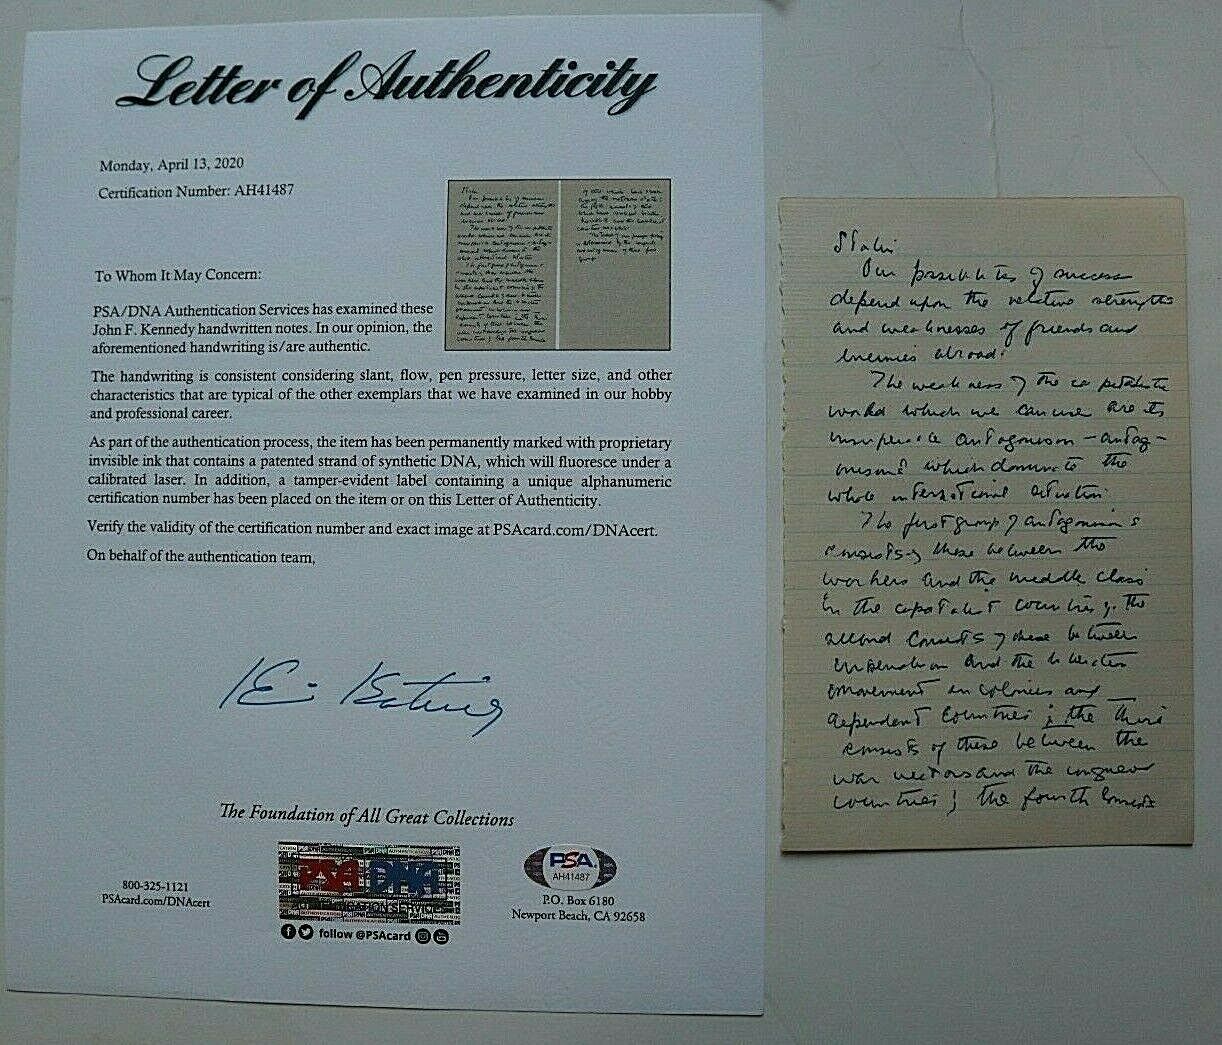 Letter of Authenticity
Monday, April 13, 2020
Certification Number: AH41487
To Whom It May Concern:
PSA/DNA Authentication Services has examined these
John F. Kennedy handwritten notes. In our opinion, the
aforementioned handwriting is/are authentic.
The handwriting is consistent considering slant, flow, pen pressure, letter size, and other
characteristics that are typical of the other exemplars that we have examined in our hobby
and professional career.
As part of the authentication process, the item has been permanently marked with proprietary
invisible ink that contains a patented strand of synthetic DNA, which will fluoresce under a
calibrated laser. In addition, a tamper-evident label containing a unique alphanumeric
certification number has been placed on the item or on this Letter of Authenticity.
Verify the validity of the certification number and exact image at PSAcard.com/DNAcert.
On behalf of the authentication team,
The Foundation of All Great Collections
800-325-1121
PSAcard.com/DNAcert
PSA DNA
AUTHENTICATION SERVICES
follow @PSAcard
PSA
AH41487
P.O. Box 6180
Newport Beach, CA 92658
Stalin
Our possibilities of success
depend upon the relative strengths
and weaknesses of friends and
enemies abroad.
The weakness of the capitalist
world which we can use are its
antagonism - antag-
onisms which dominate the
whole international situation
The first group of antagonisms
consists of those between the
workers and the middle class
in the capitalist countries. The
second consists of those between
imperialism and the liberation
movement in colonies and
dependent countries; the third
consists of those between the
war victors and the conquered
countries; the fourth consists